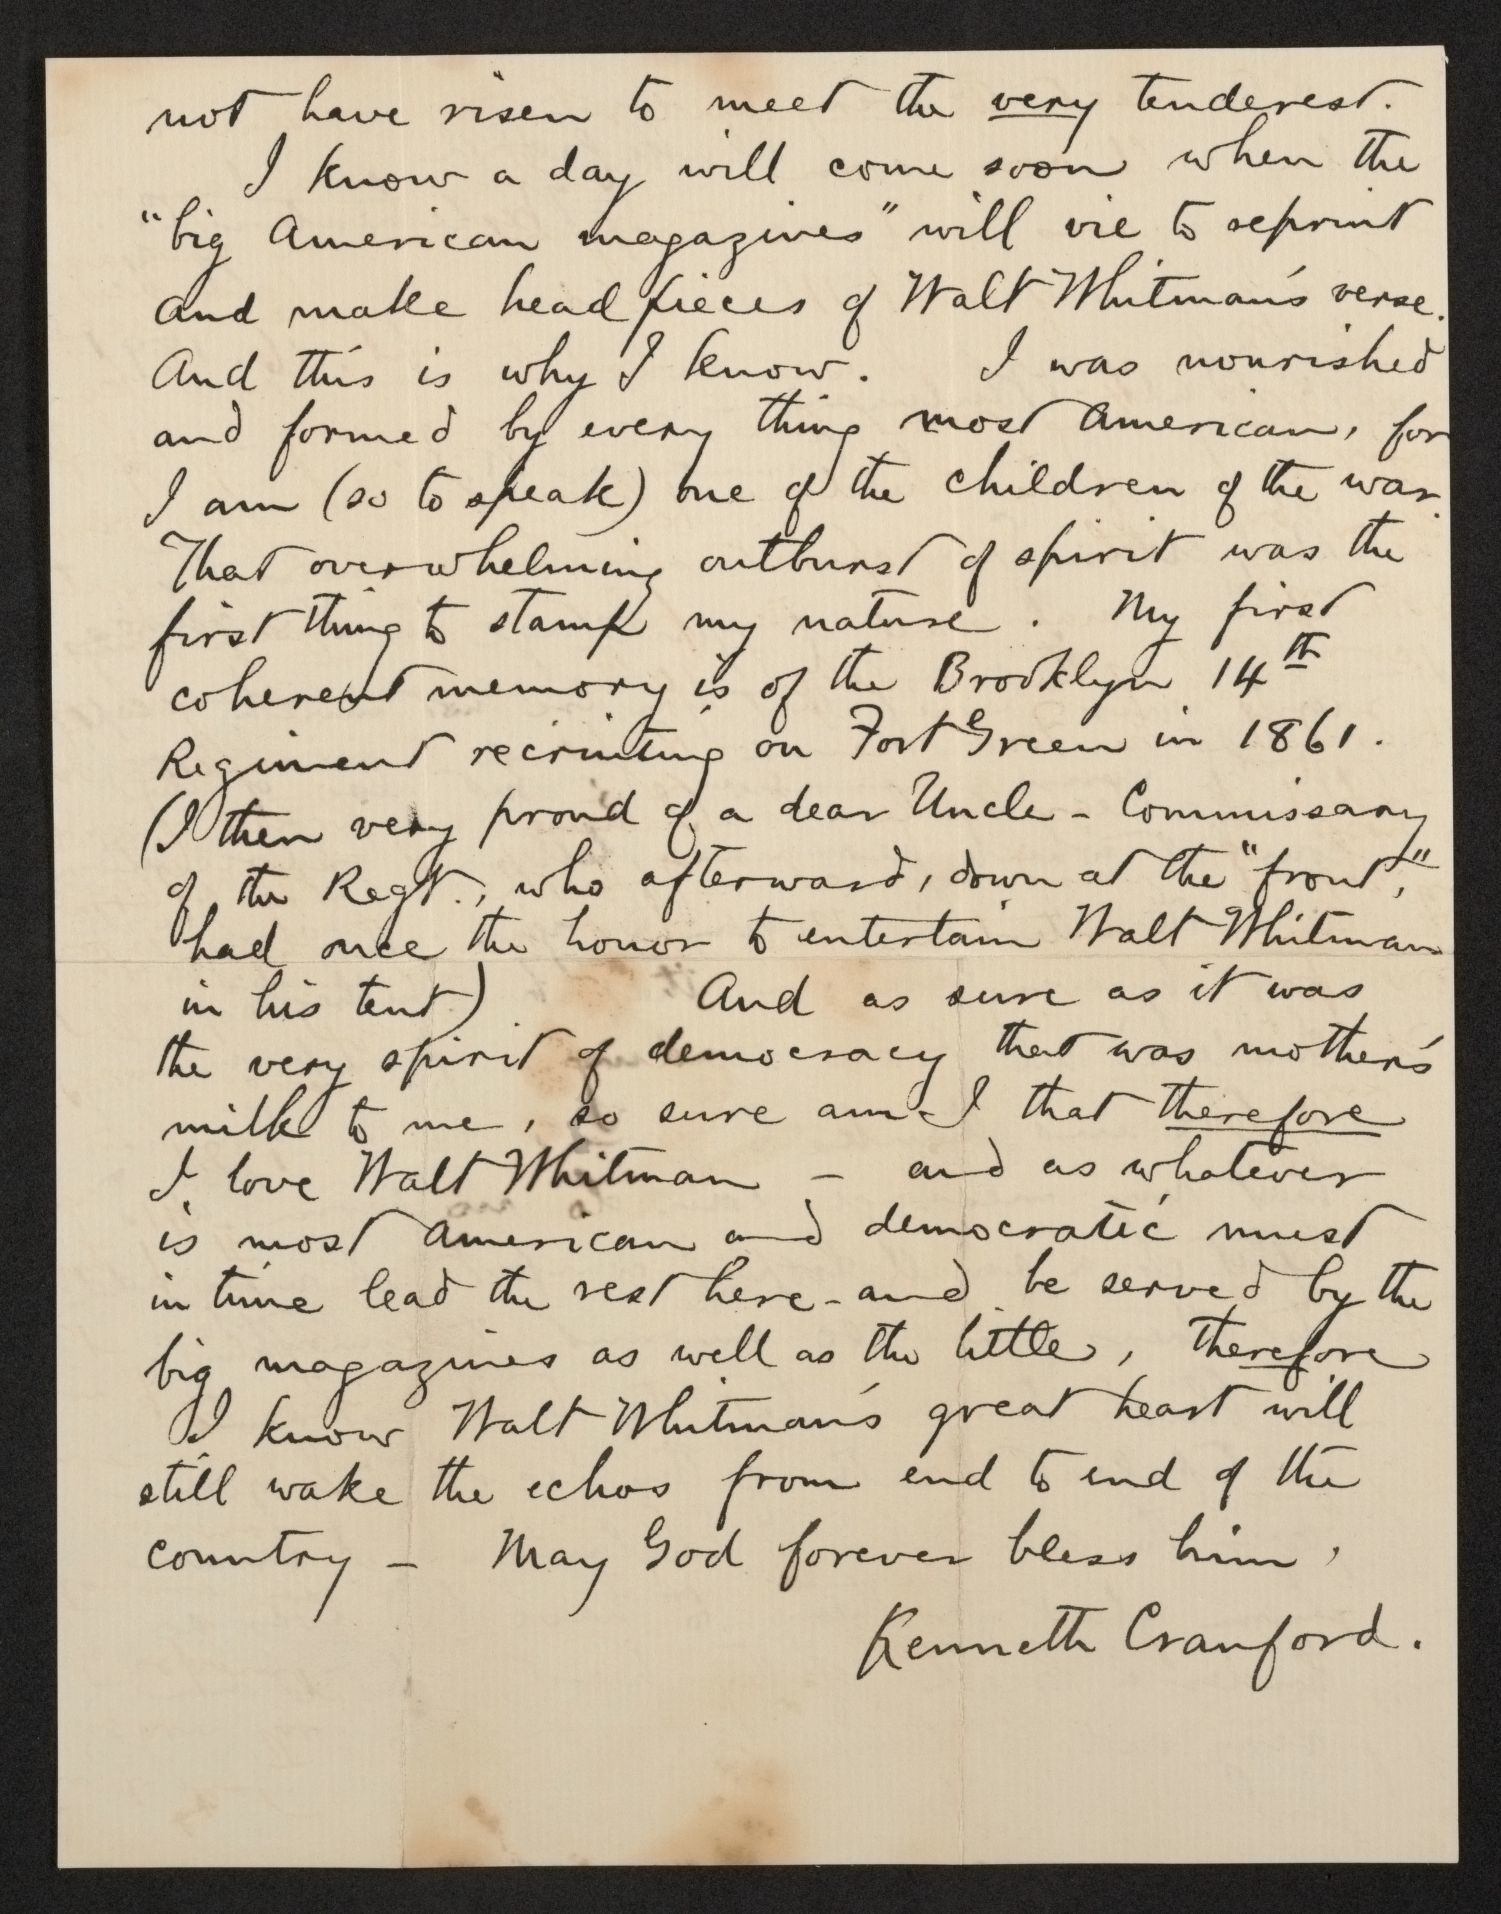 not have risen to meet the very tenderest.
I know a day will come soon when the
"big American magazines" will vie to reprint
and make head pieces of Walt Whitman's verse.
And this is why I know. I was nourished
and formed by every thing most American, for
I am (so to speak) one of the children of the war.
That overwhelming outburst of spirit was the
first thing to stamp my nature. My first
coherent memory is of the Brooklyn 14th
Regiment recruiting on Fort Green in 1861.
(I then very proud of a dear Uncle - Commissary
of the Regt., who afterward, down at the "front",
had once the honor to entertain Walt Whitman
in his tent) And as sure as it was
the very spirit of democracy that was mother's
milk to me, so sure am I that therefore
I love Walt Whitman - and as whatever
is most American and democratic must
in time lead the rest here - and be served by the
big magazines as well as the little, therefore
I know Walt Whitman's great heart will
still wake the echos from end to end of the
country - May God forever bless him,
Kenneth Cranford.